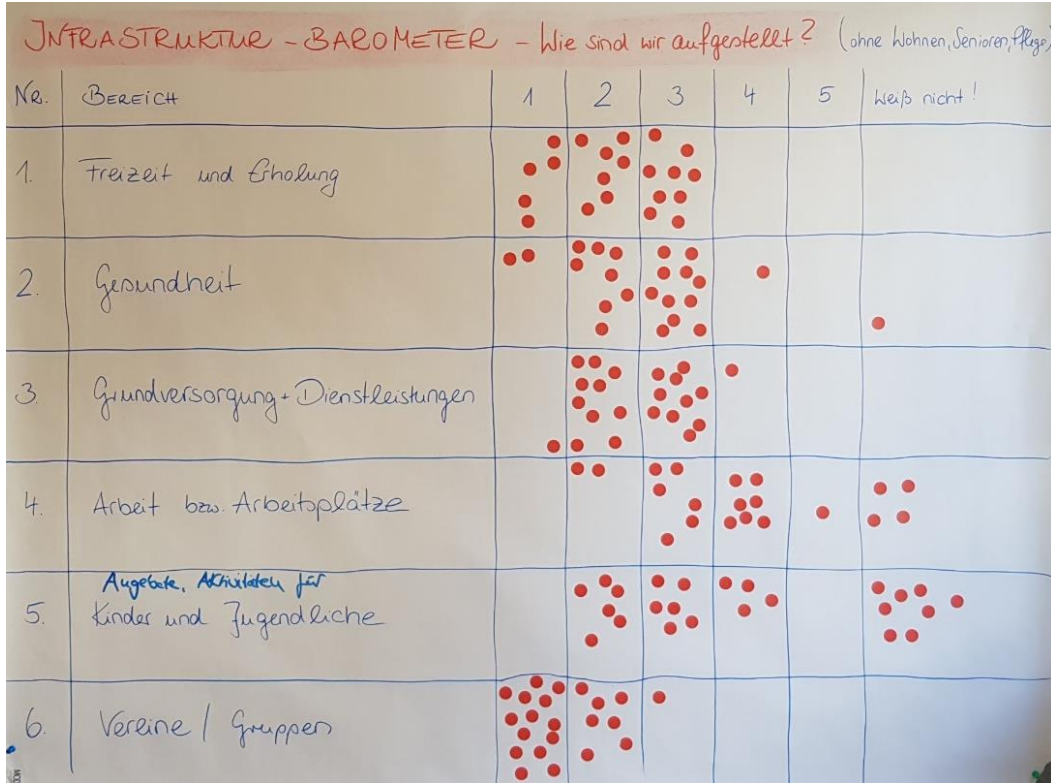 INFRASTRUKTUR - BAROMETER - Wie sind wir aufgestellt? (ohne Wohnen, Senioren, Pflege)
NR. BEREICH 1 2 3 4 5 Weiß nicht!
1. Freizeit und Erholung
2. Gesundheit
3. Grundversorgung + Dienstleistungen
4. Arbeit bzw. Arbeitsplätze
Angebote, Aktivitäten für
5. Kinder und Jugendliche
6. Vereine / Gruppen